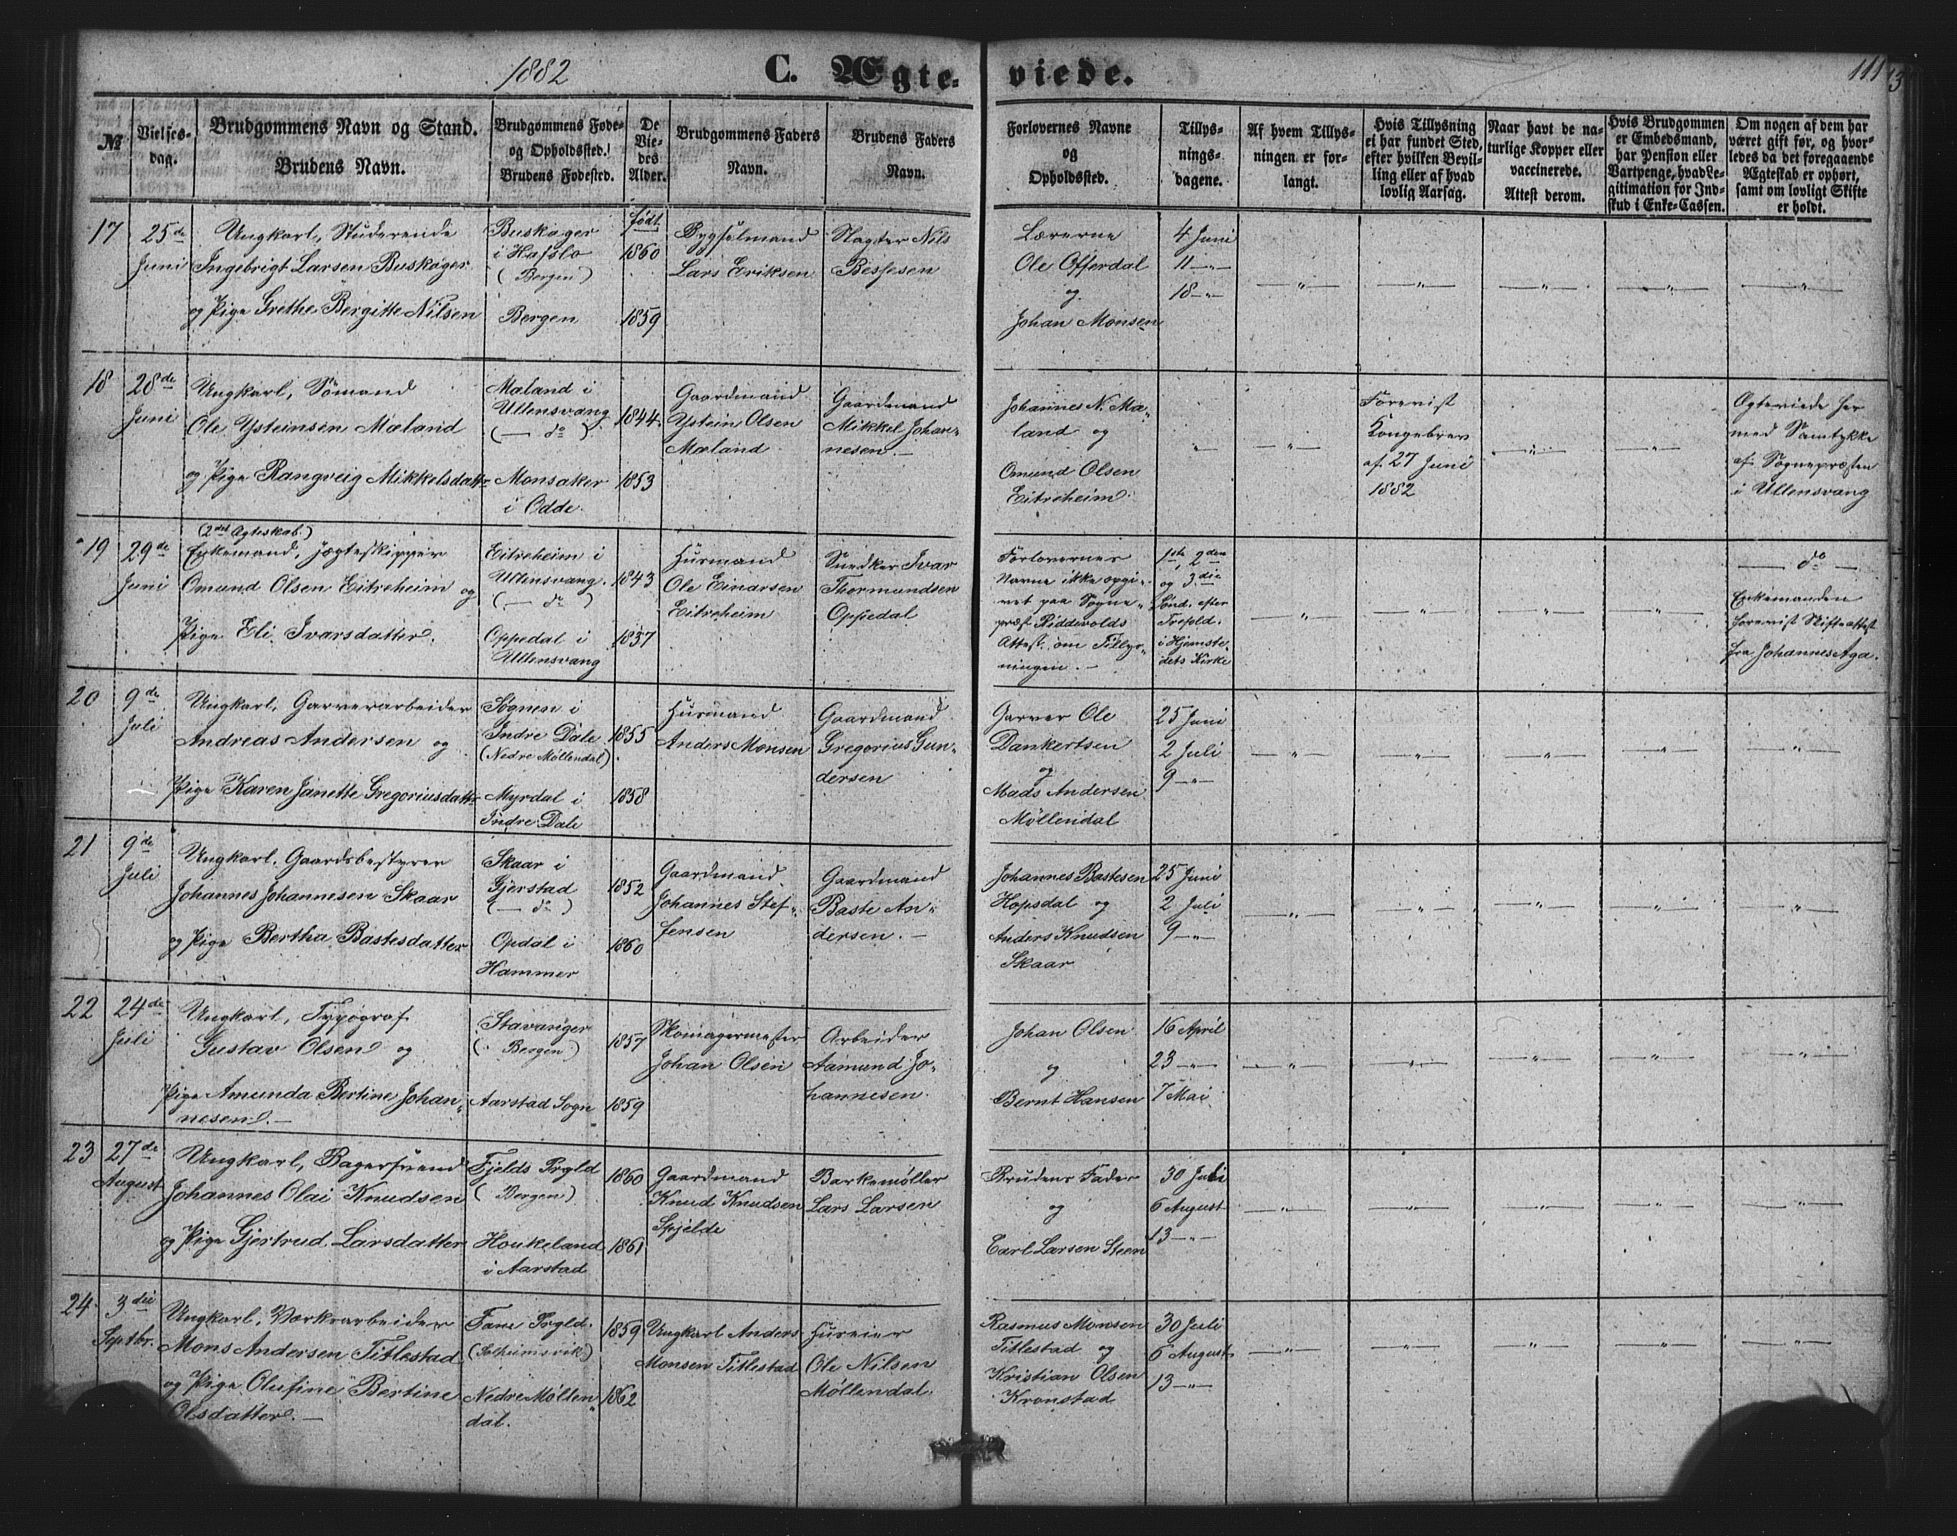 1882
C. Ægte-
viede.
111
№
Vielses-
dag.
Brudgommens Navn og Stand.
Brudens Navn.
Brudgommens Føde-
og Opholdssted.
Brudens Fødested.
De
Vie-
des
Alder.
Brudgommens Faders
Navn.
Brudens Faders
Navn.
Forlovernes Navne
og
Opholdssted.
Tillys-
nings-
dagene.
Af hvem Tillys-
ningen er for-
langt.
Hvis Tillysning
ei har fundet Sted,
efter hvilken Bevil-
ling eller af hvad
lovlig Aarsag.
Naar havt de na-
turlige Kopper eller
vaccinerede.
Attest derom.
Hvis Brudgommen
er Embedsmand,
har Pension eller
Vartpenge, hvad Le-
gitimation for Ind-
skud i Enke-Cassen.
Om nogen af dem har
været gift før, og hvor-
ledes da det foregaaende
Ægteskab er ophørt,
samt om lovligt Skifte
er holdt.
17
25de
Juni
Ungkarl, Studerende
Ingebrigt Larsen Buskager
og Pige Grethe Bergitte Nilsen
Buskager
i Hafslo
(Bergen)
Bergen
født
1860
1859
Bygselmand
Lars Eriksen
Slagter Nils
Bessesen
Lærerne
Ole Offerdal
og
Johan Monsen
4 Juni
11 —"—
18 —"—
18
28de
Juni
Ungkarl, Sømand
Ole Ysteinsen Mæland
og Pige Rangveig Mikkelsdatter
Mæland i
Ullensvang
(— do )
Monsaker
i Odde.
1844
1853
Gaardmand
Ystein Olsen
Mæland
Gaardmand
Mikkel Johan-
nesen.—
Johannes N. Mæ-
land og
Omund Olsen
Eitreheim.
Forevist
Kongebrev
af 27 Juni
1882
Ægteviede her
med Samtykke
af Sognepræsten
i Ullensvang
19
29de
Juni
(2det Ægteskab.)
Enkemand, Jægteskipper
Omund Olsen Eitreheim og
Pige Eli Ivarsdatter.
Eitreheim i
Ullensvang.
(— do )
Oppedal i
Ullensvang
1843
1857
Husmand
Ole Einarsen
Eitreheim
Snedker Ivar
Thormundsen
Oppedal
Forlovernes
Navne ikke opgi-
vet paa Sogne-
præst Ridderolds
Attest om Tillys-
ningen.—
1ste, 2den
og 3die
Sønd. efter
Trefold.
i Hjemste-
dets Kirke
— do —
Enkemanden
forevist Skifteattest
fra Johannes Aga.
20
9de
Juli
Ungkarl, Garverarbeider
Andreas Andersen og
Pige Karen Janette Gregoriusdatter
Søgnen i
Indre Dale
(Nedre Møllendal)
Myrdal i
Indre Dale
1855
1858
Husmand
Anders Monsen
Gaardmand
Gregorius Gun-
dersen
Garver Ole
Dankertsen
og
Mads Andersen
Møllendal
25 Juni
2 Juli
9 —"—
21
9de
Juli
Ungkarl, Gaardsbestyrer
Johannes Johannesen Skaar
og Pige Bertha Bastesdatter
Skaar i
Gjerstad
(— do )
Opdal i
Hammer
1852
1860
Gaardmand
Johannes Stef-
fensen
Gaardmand
Baste An-
dersen.—
Johannes Bastesen
Hopsdal og
Anders Knudsen
Skaar
25 Juni
2 Juli
9 —"—
22
24de
Juli
Ungkarl, Typograf
Gustav Olsen og
Pige Amunda Bertine Johan-
nesen.—
Stavanger
(Bergen)
Aarstad Sogn
1857
1859
Skomagermester
Johan Olsen
Arbeider
Aamund Jo-
hannesen.
Johan Olsen
og
Bernt Hansen
16 April
23 —"—
7 Mai
23
27de
August
Ungkarl, Bagersvend
Johannes Olai Knudsen
og Pige Gjertrud Larsdatter
Fjelds Prgld
(Bergen)
Houkeland
i Aarstad
1860
1861
Gaardmand
Knud Knudsen
Spjelde
Barkemøller
Lars Larsen
Brudens Fader
og
Carl Larsen Steen
30 Juli
6 August
13 —"—
24
3die
Septbr.
Ungkarl, Værksarbeider
Mons Andersen Titlestad
og Pige Olufine Bertine
Olsdatter.—
Fane Prgld.
(Solheimsvik)
Nedre Møllen-
dal.
1859
1862
Ungkarl Anders
Monsen Titlestad
Huseier
Ole Nilsen
Møllendal.
Rasmus Monsen
Titlestad og
Kristian Olsen
Kronstad
30 Juli
6 August
13 —"—